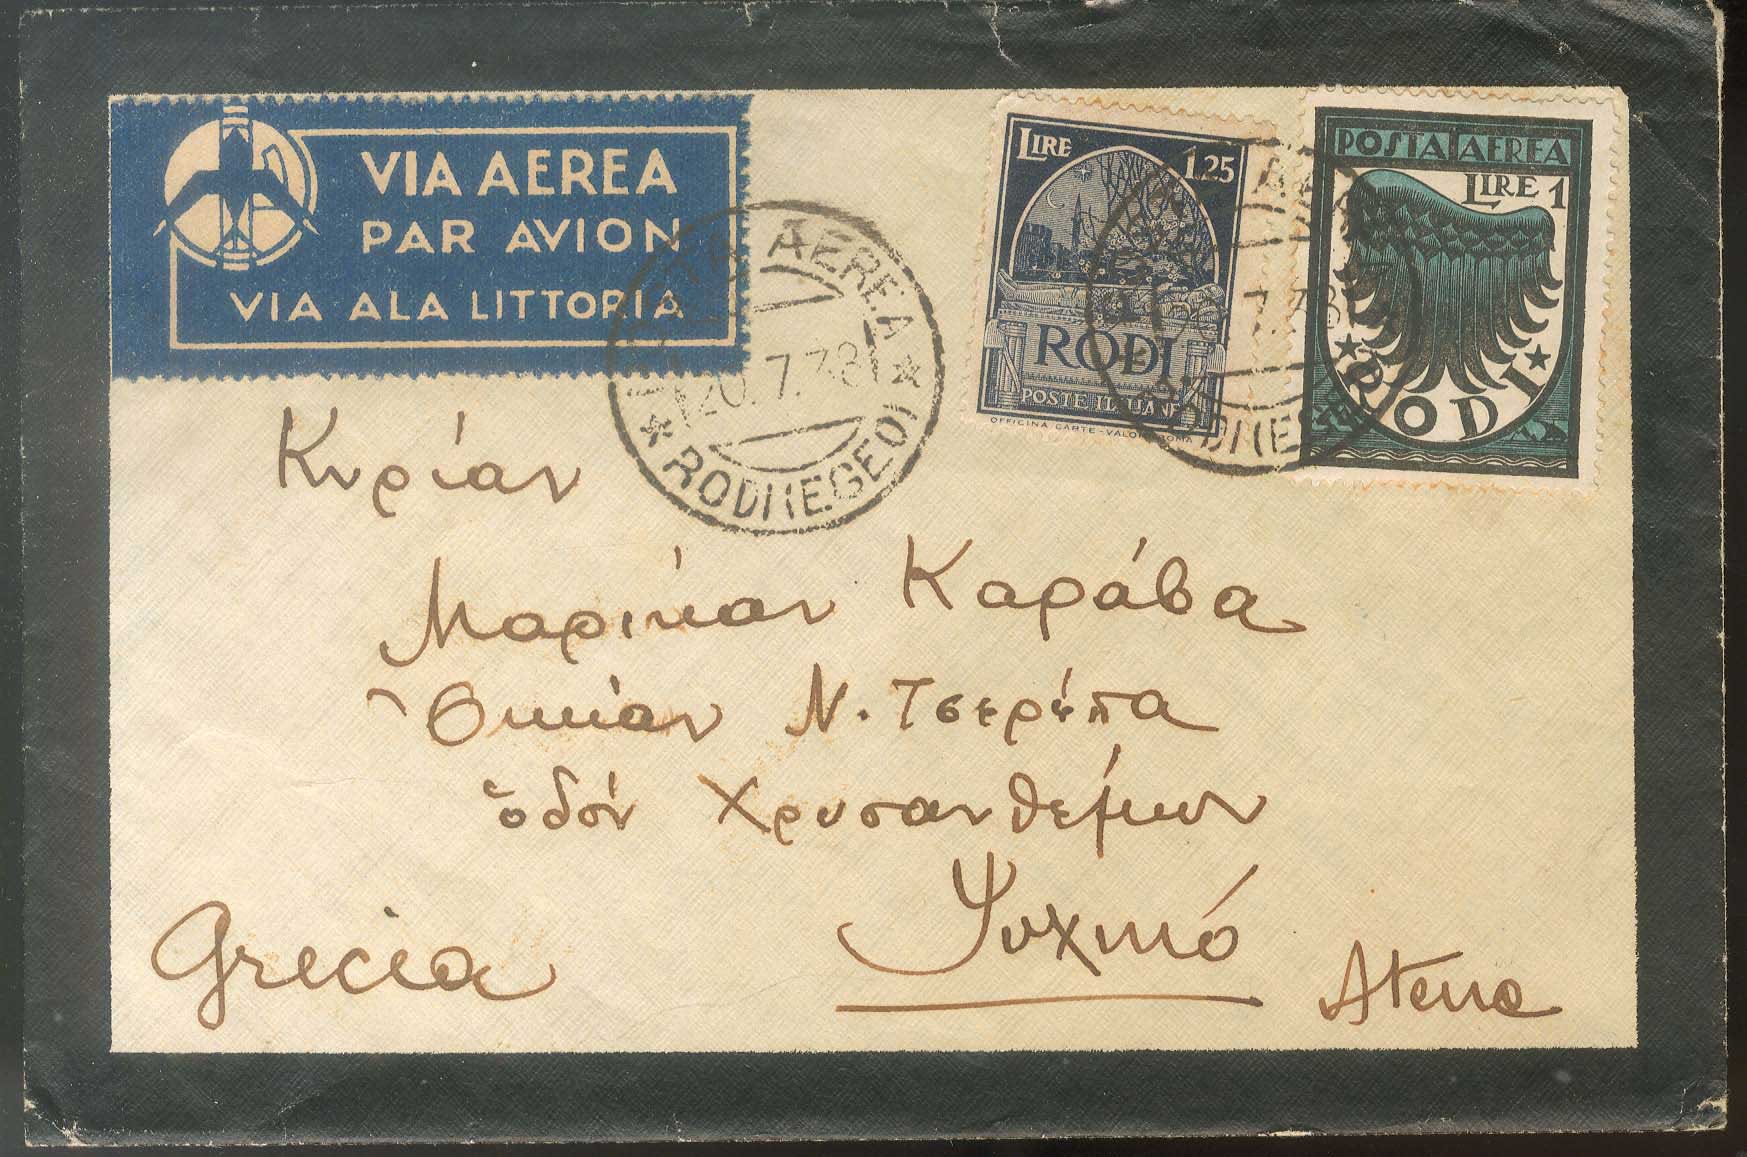 VIA AEREA
PAR AVION
VIA ALA LITTORIA
LIRE 1.25
RODI
POSTE ITALIANE
OFFICINA CARTE-VALORI ROMA
POSTA AEREA
LIRE 1
RODI
POSTA AEREA
20.7.38
RODI (EGEO)
7.38
RODI (EGEO)
Κυρίαν
Μαρίκαν Καράβα
Οικίαν Ν. Τσερέπα
ὁδόν Χρυσανθέμων
Ψυχικό
Grecia
Atene